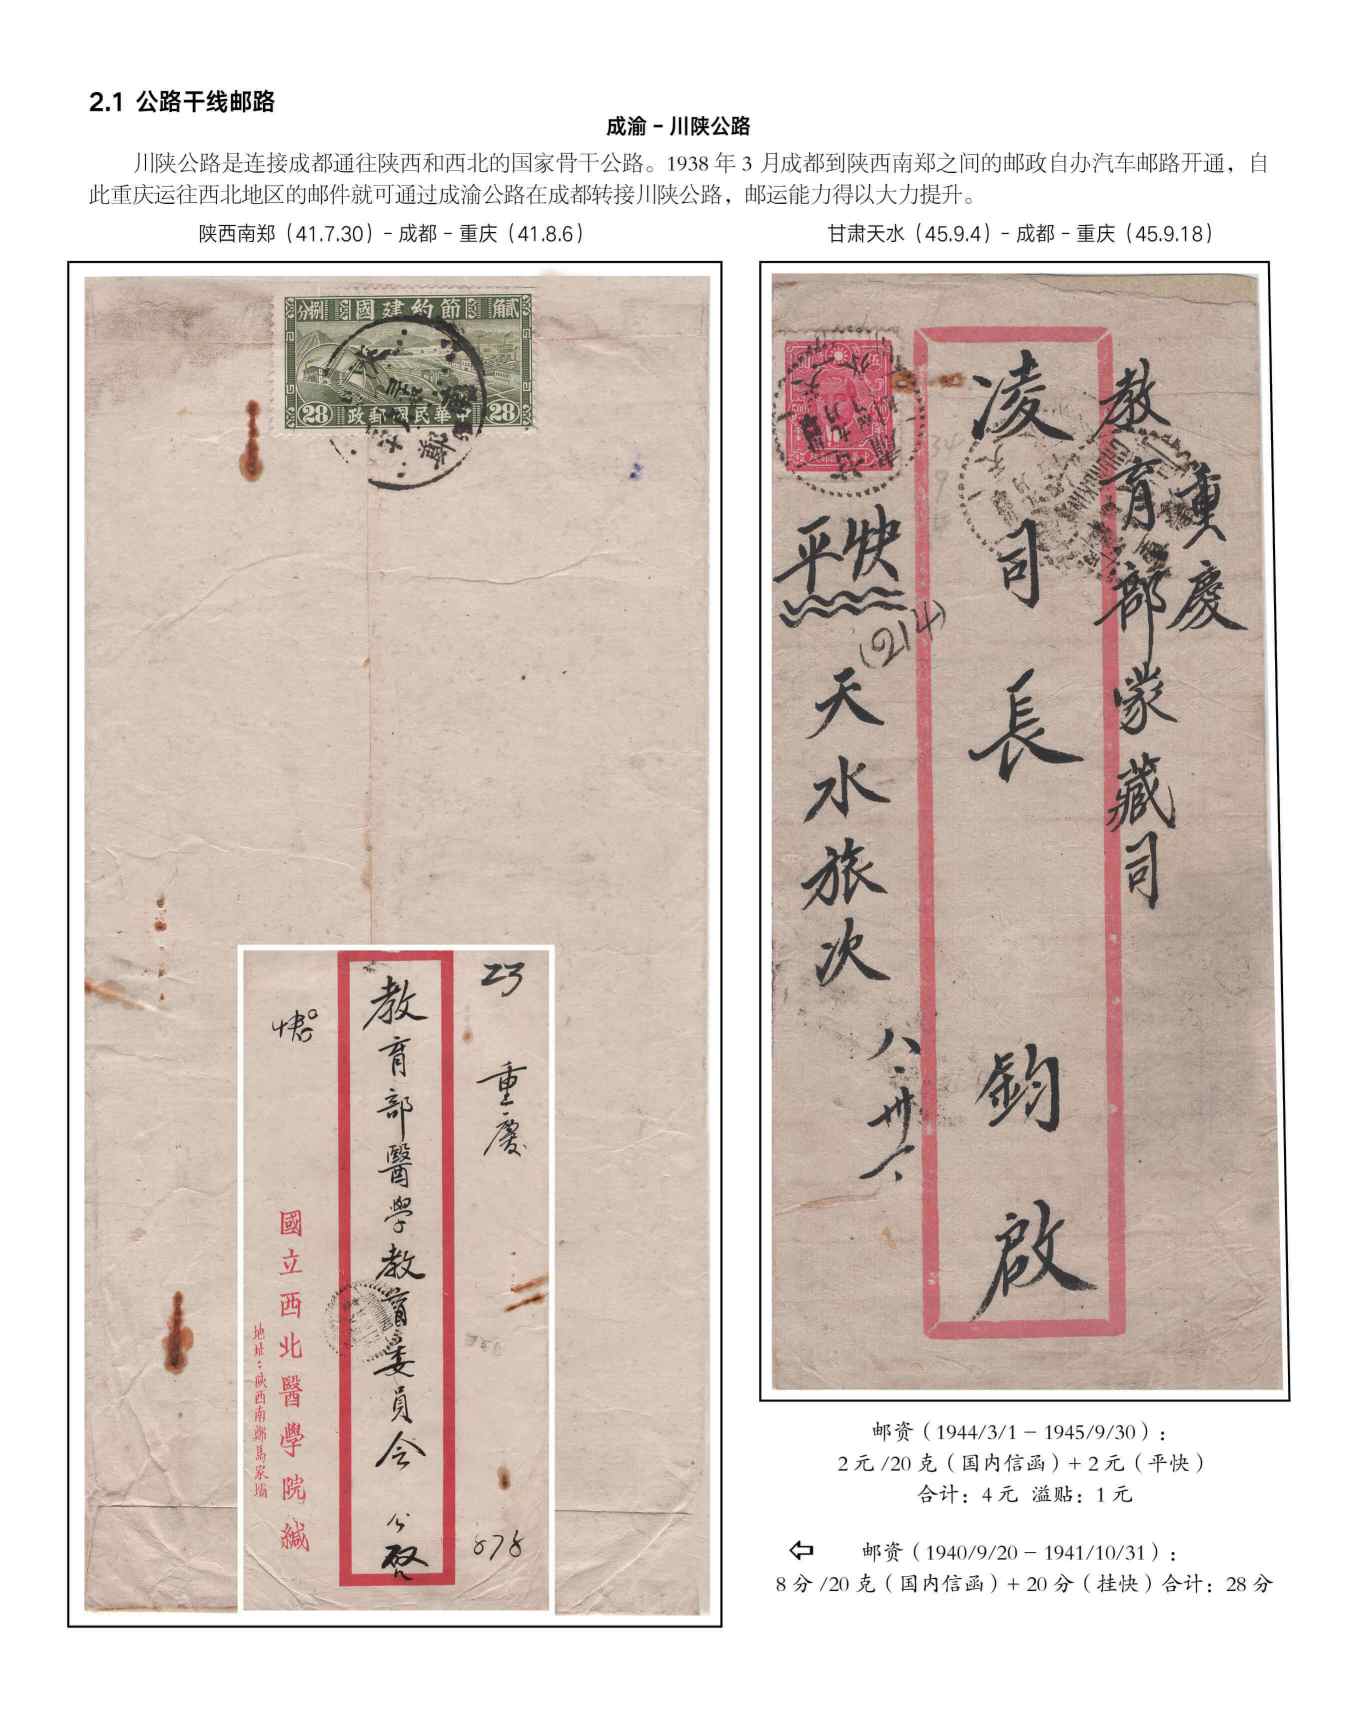 2.1 公路干线邮路
成渝 – 川陕公路
川陕公路是连接成都通往陕西和西北的国家骨干公路。1938 年 3 月成都到陕西南郑之间的邮政自办汽车邮路开通，自
此重庆运往西北地区的邮件就可通过成渝公路在成都转接川陕公路，邮运能力得以大力提升。
陕西南郑（41.7.30）– 成都 – 重庆（41.8.6）
甘肃天水（45.9.4）– 成都 – 重庆（45.9.18）
分捌 國建約節 貳角
28 政郵國民華中 28
23
重慶
教育部醫學教育委員会 公啓
快
國立西北醫學院緘
地址：陝西南鄭馬家壩
878
重慶
教育部蒙藏司
凌司長 鈞啟
平快
(914)
天水旅次
八.卅一、
邮资（1944/3/1 – 1945/9/30）：
2 元 /20 克（国内信函）+ 2 元（平快）
合计：4 元 溢贴：1 元
邮资（1940/9/20 – 1941/10/31）：
8 分 /20 克（国内信函）+ 20 分（挂快）合计：28 分